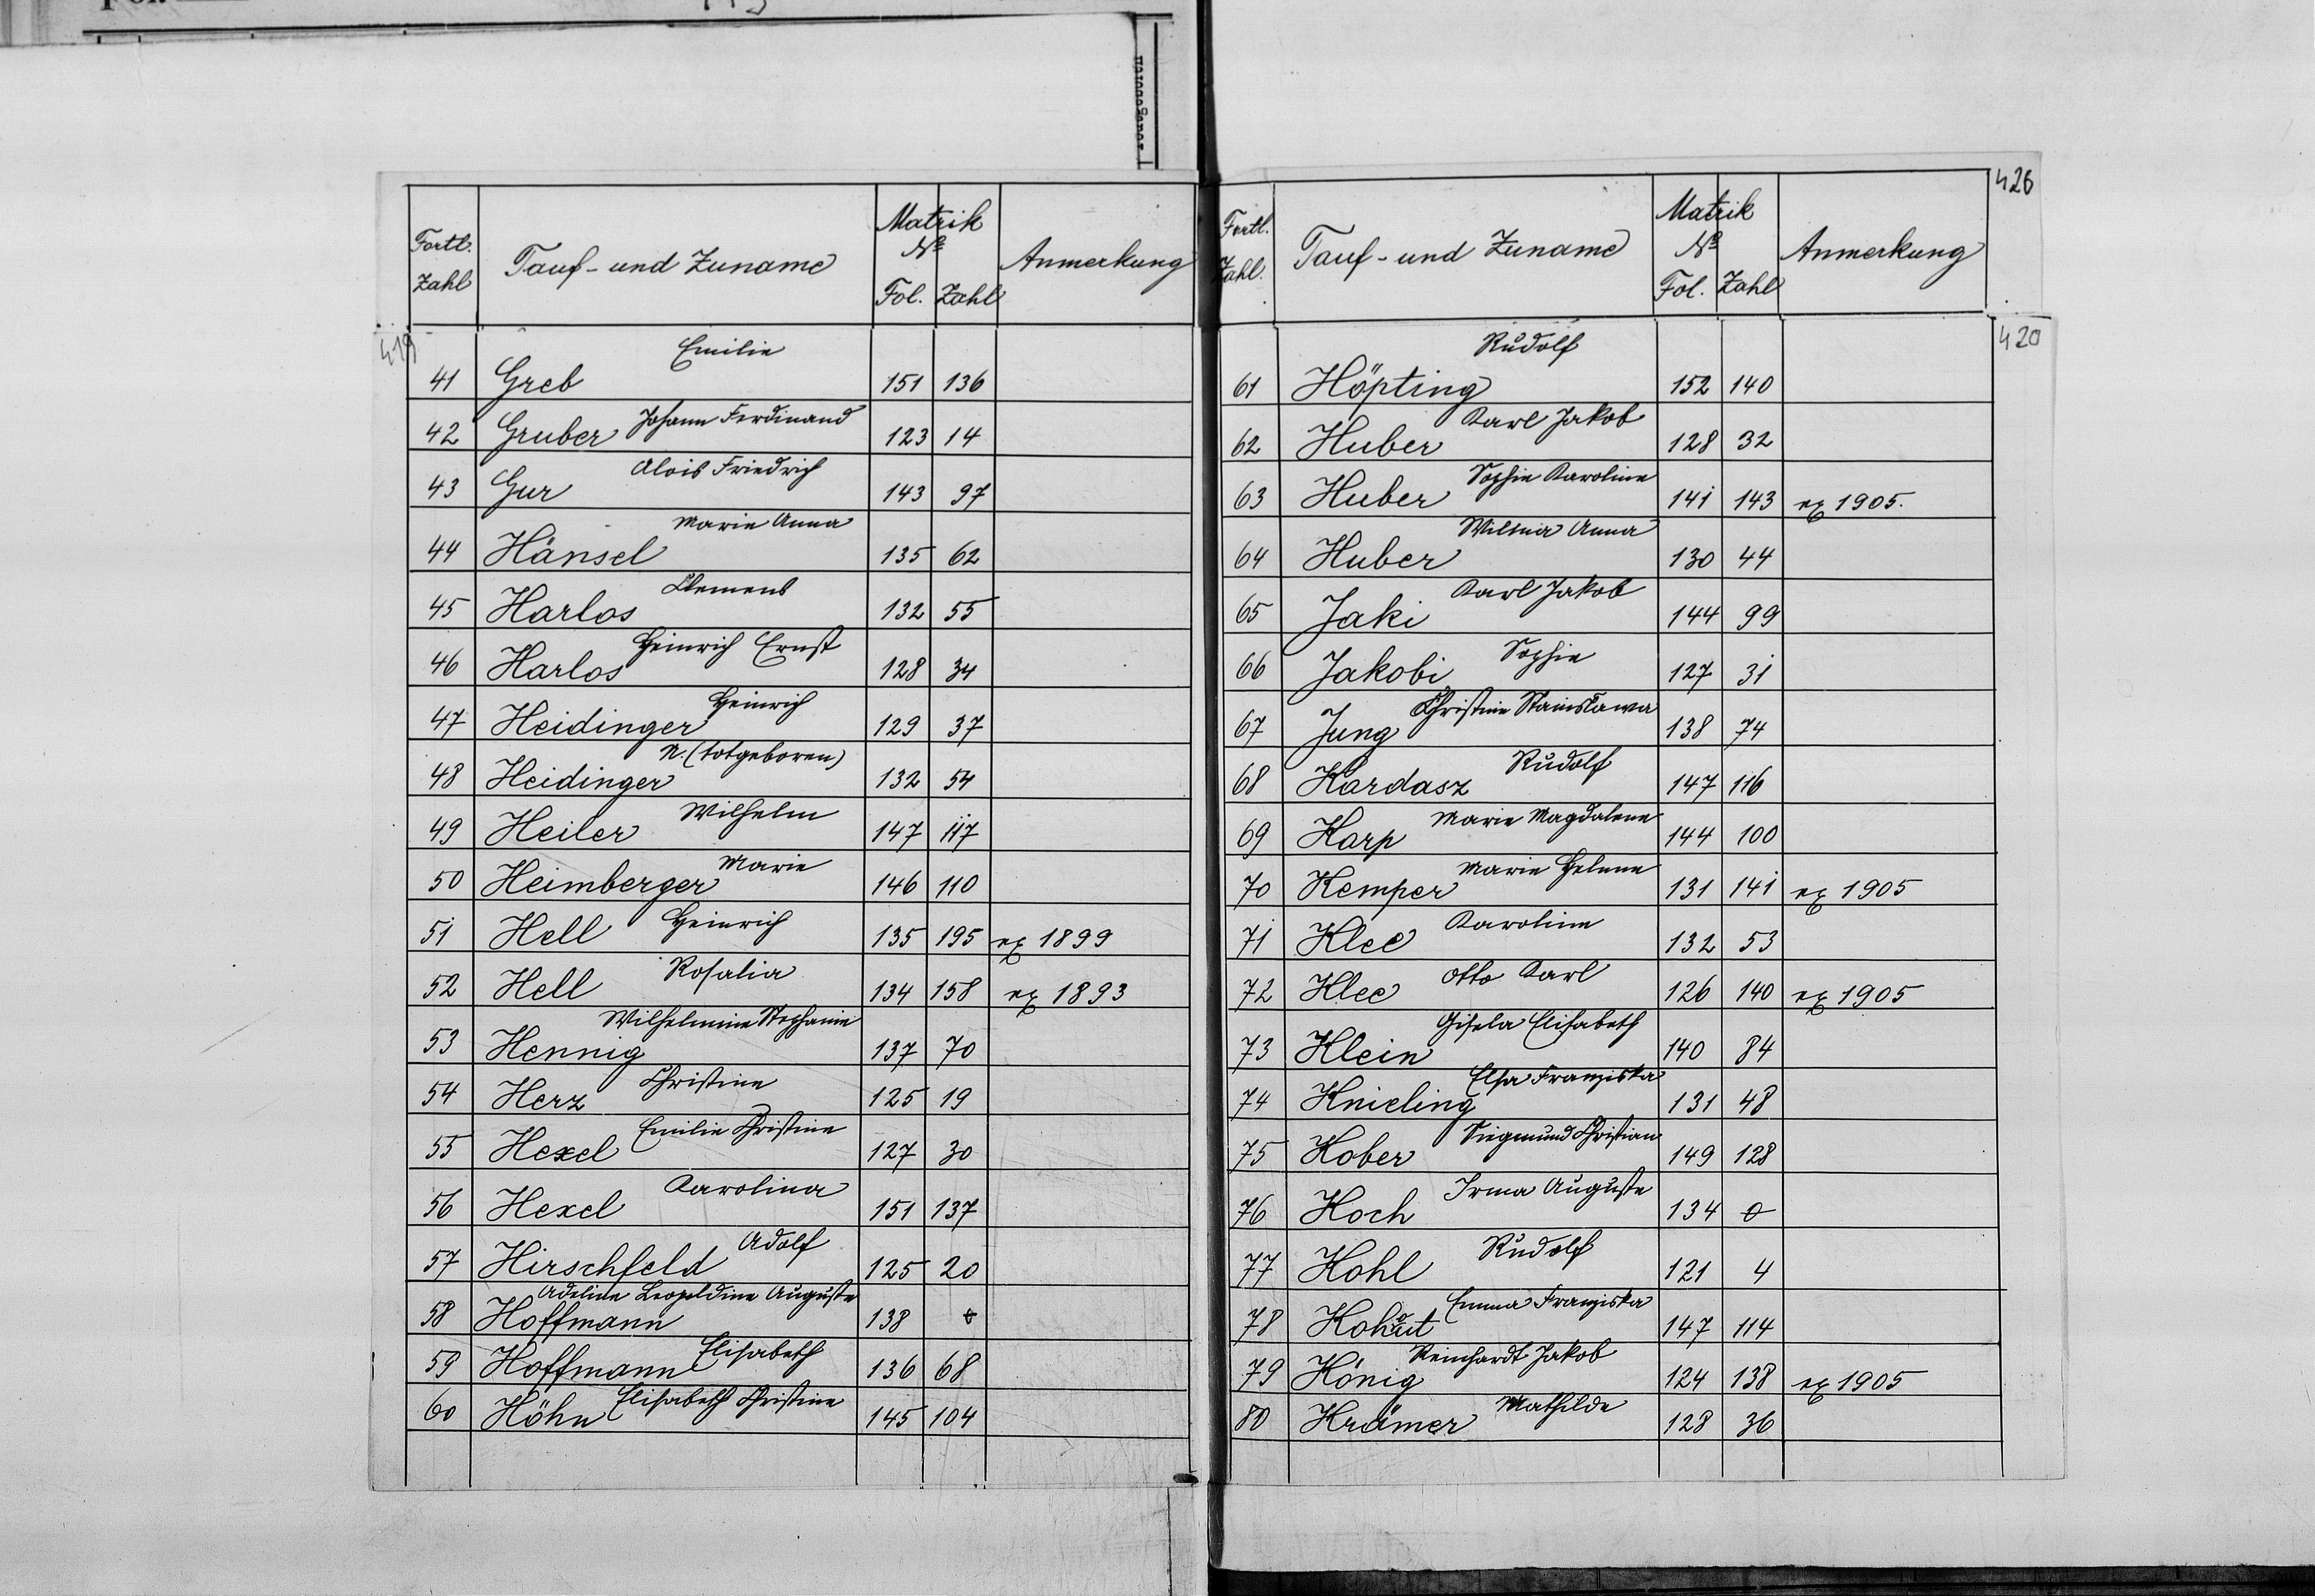 419
Fortl. Zahl Tauf- und Zuname Matrik № Fol. Zahl Anmerkung
41 Greb Emilie 151 136
42 Gruber Johann Ferdinand 123 14
43 Gur Alois Friedrich 143 97
44 Hänsel Marie Anna 135 62
45 Harlos Klemens 132 55
46 Harlos Heinrich Ernst 128 34
47 Heidinger Heinrich 129 37
48 Heidinger N. (totgeboren) 132 54
49 Heiler Wilhelm 147 117
50 Heimberger Marie 146 110
51 Hell Heinrich 135 195 ex 1899
52 Hell Rosalia 134 158 ex 1893
53 Hennig Wilhelmine Stephanie 137 70
54 Herz Christine 125 19
55 Hexel Emilie Christine 127 30
56 Hexel Karolina 151 137
57 Hirschfeld Adolf 125 20
58 Hoffmann Adeline Leopoldine Auguste 138
59 Hoffmann Elisabeth 136 68
60 Höhn Elisabeth Christine 145 104
426
420
Fortl. Zahl. Tauf- und Zuname Matrik № Fol. Zahl Anmerkung
61 Höpting Rudolf 152 140
62 Huber Karl Jakob 128 32
63 Huber Sophie Karoline 141 143 ex 1905.
64 Huber Wilma Anna 130 44
65 Jaki Karl Jakob 144 99
66 Jakobi Sophie 127 31
67 Jung Christine Stanislawa 138 74
68 Kardasz Rudolf 147 116
69 Karp Marie Magdalene 144 100
70 Kemper Marie Helene 131 141 ex 1905
71 Klee Karoline 132 53
72 Klee Otto Karl 126 140 ex 1905
73 Klein Gisela Elisabeth 140 84
74 Knieling Elsa Franziska 131 48
75 Kober Siegmund Christian 149 128
76 Koch Irma Auguste 134
77 Kohl Rudolf 121 4
78 Kohout Emma Franziska 147 114
79 König Reinhardt Jakob 124 138 ex 1905
80 Krämer Mathilde 128 36